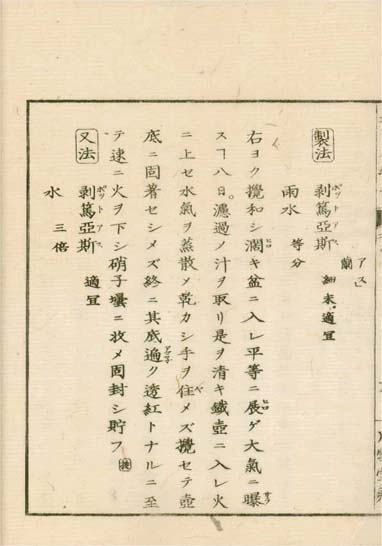 製法
剥篤亞斯 蘭 細末 適宜
ポットアス
雨水 等分
右ヨク攪和シ濶キ盆ニ入レ平等ニ展ゲ大氣ニ曝
スヿ八日。濾過ノ汁ヲ取リ是ヲ清キ鐵壺ニ入レ火
ニ上セ水氣ヲ蒸散メ乾カシ手ヲ住メズ攪セテ壺
底ニ固著セシメズ終ニ其底遍ク透紅トナルニ至
テ速ニ火ヲ下シ硝子壜ニ收メ固封シ貯フ
又法
剥篤亞斯 適宜
ポットアス
水 三倍